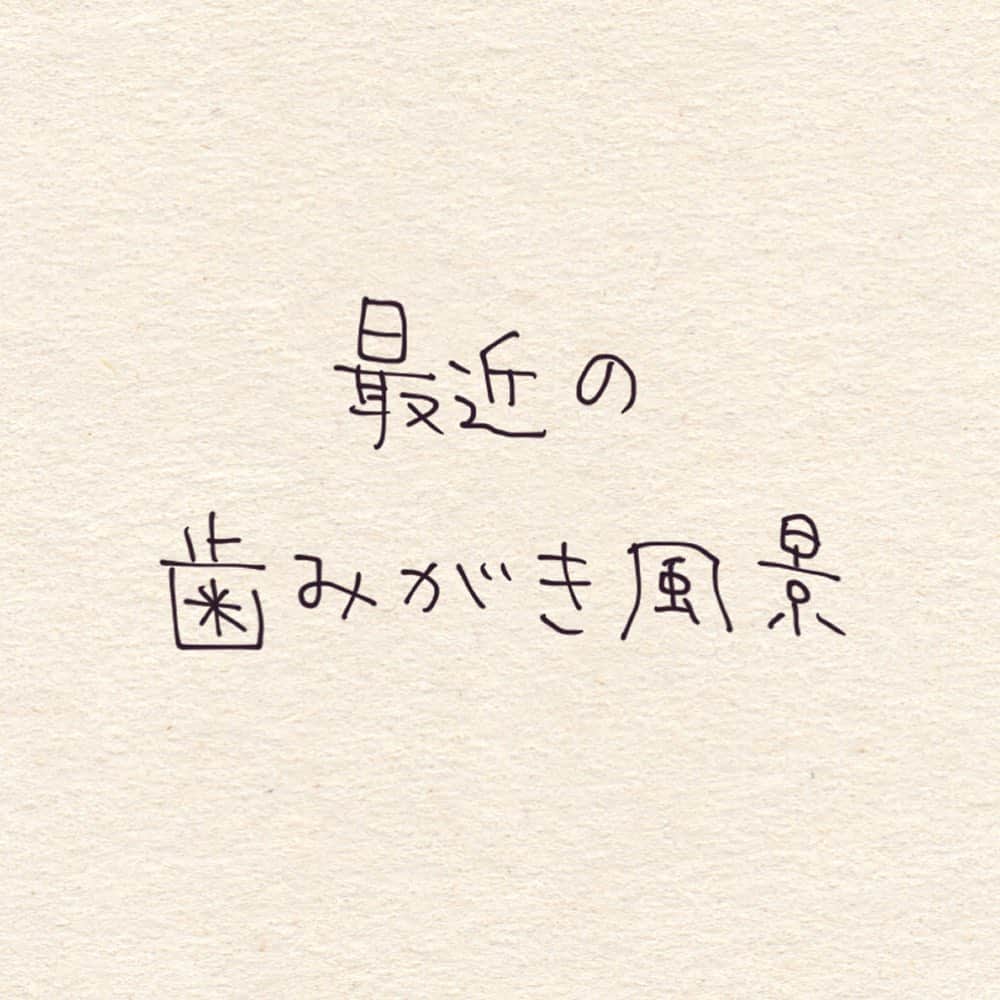 最近の
歯みがき風景